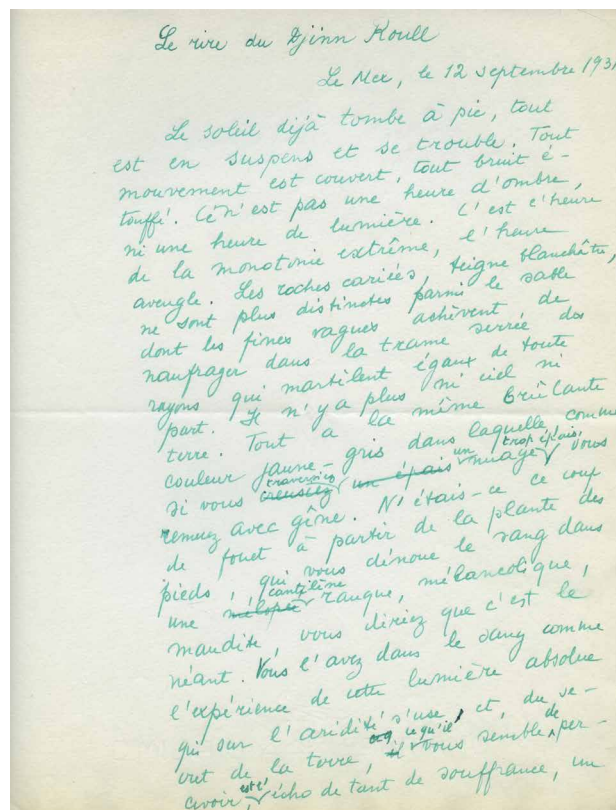 Le rire du Djinn Roull
Le Mex, le 12 septembre 193
Le soleil déjà tombe à pic, tout
est en suspens et se trouble. Tout
mouvement est couvert, tout bruit é-
touffé. Ce n'est pas une heure d'ombre,
ni une heure de lumière. C'est l'heure
de la monotonie extrême, l'heure
aveugle. Les roches cariées, teigne blanchâtre,
ne sont plus distinctes parmi le sable
dont les fines vagues achèvent de
naufrager dans la trame serrée des
rayons qui martèlent égaux de toute
part. Il n'y a plus ni ciel ni
terre. Tout a la même brûlante
couleur jaune-gris dans laquelle comme
un trop épais,
traversiez
si vous creusiez un épais nuage vous
remuez avec gêne. N'étais-ce ce coup
de fouet à partir de la plante des
pieds, qui vous dénoue le sang dans
cantilène
une mélopée rauque, mélancolique,
maudite, vous diriez que c'est le
néant. Vous l'avez dans le sang comme
l'expérience de cette lumière absolue
qui sur l'aridité s'use et, du se-
ce qu'il de
cret de la terre, il vous semble per-
est l'
cevoir, écho de tant de souffrance, un